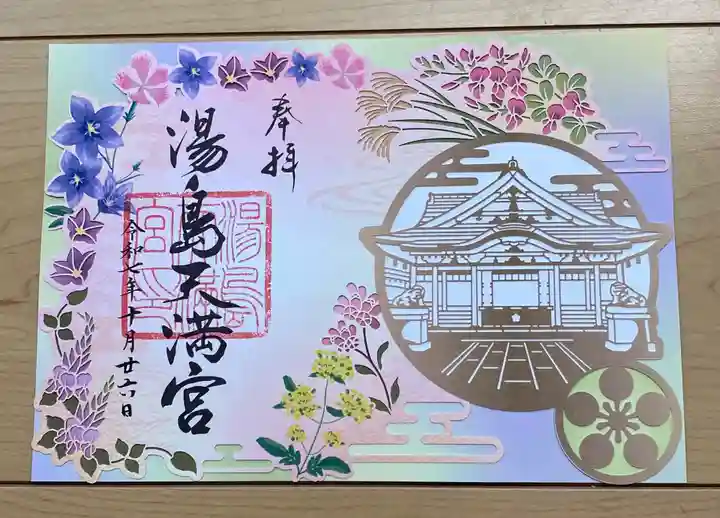 奉拝
湯島天満宮
令和七年十月廿六日